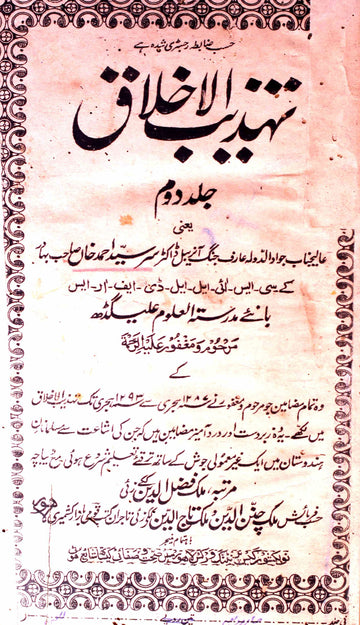 حسب ضابطہ رجسٹری شدہ ہے
تہذیب الاخلاق
جلد دوم
یعنی
عالیجناب جواد الدولہ عارف جنگ آنریبل ڈاکٹر سر سید احمد خاں صاحب بہادر
کے سی ایس آئی ایل ایل ڈی ایف آر ایس
بانئے مدرستہ العلوم علیگڈھ
مرحوم و مغفور علیہ الرحمۃ
کے
وہ تمام مضامین جو مرحوم و مغفور نے سنہ ۱۲۸۷ ہجری سے سنہ ۱۲۹۳ ہجری تک تہذیب الاخلاق
میں لکھے۔ یہ وہ زبردست اور درد آمیز مضامین ہیں کہ جن کی اشاعت سے مسلمانان
ہندوستان میں ایک غیر معمولی جوش کے ساتھ ترقئے تعلیم شروع ہوئی مع دیباچہ
مرتبہ ملک فضل الدین ککے زئی
حسب فرمائش ملک چنن الدین و ملک تاج الدین ککے زئی تاجران کتب قومی بازار کشمیری لاہور
باہتمام